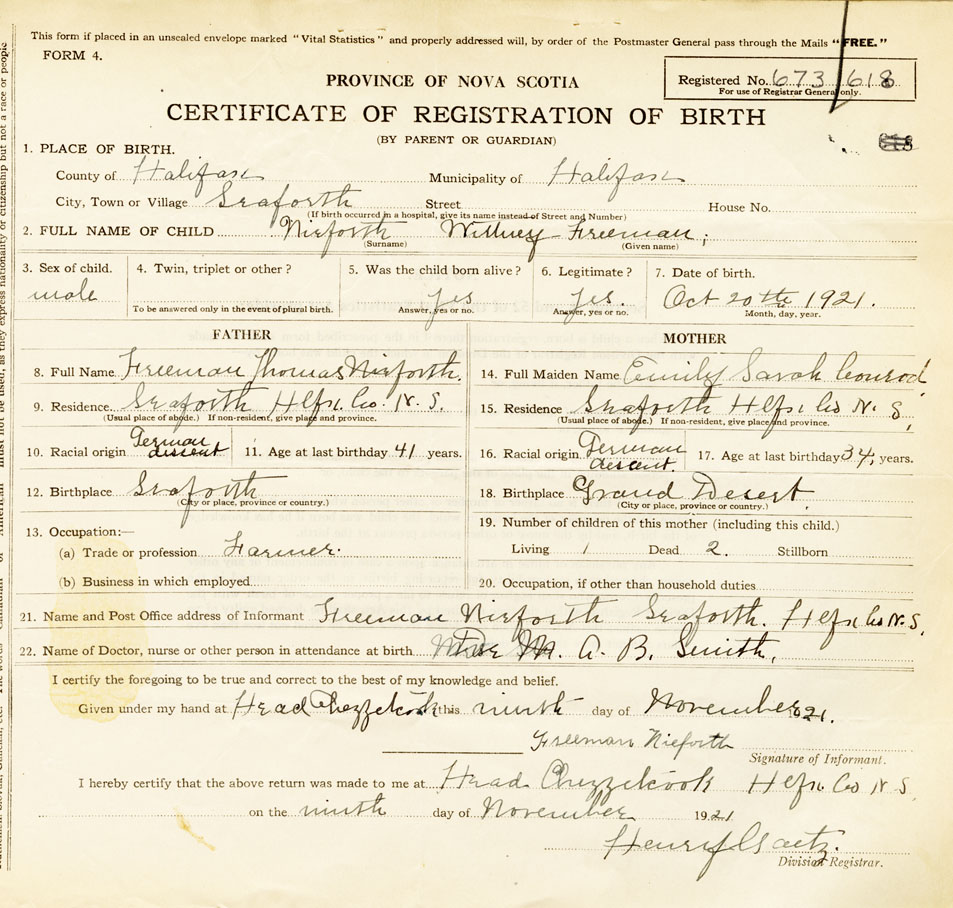 This form if placed in an unsealed envelope marked "Vital Statistics" and properly addressed will, by order of the Postmaster General pass through the Mails "FREE."
FORM 4.
PROVINCE OF NOVA SCOTIA
Registered No. 673 618
For use of Registrar General only.
CERTIFICATE OF REGISTRATION OF BIRTH
(BY PARENT OR GUARDIAN)
1. PLACE OF BIRTH.
County of Halifax Municipality of Halifax
City, Town or Village Seaforth Street House No.
(If birth occurred in a hospital, give its name instead of Street and Number)
2. FULL NAME OF CHILD Nieforth Freeman;
(Surname) (Given name)
3. Sex of child. 4. Twin, triplet or other? 5. Was the child born alive? 6. Legitimate? 7. Date of birth.
male yes yes. Oct 20th 1921.
To be answered only in the event of plural birth. Answer, yes or no. Answer, yes or no. Month, day, year.
FATHER MOTHER
8. Full Name Freeman Thomas Nieforth. 14. Full Maiden Name Emily Sarah Conrod
9. Residence. Seaforth Hfx. Co. N. S. 15. Residence Seaforth Hfx Co N. S,
(Usual place of abode.) If non-resident, give place and province. (Usual place of abode.) If non-resident, give place and province.
10. Racial origin German descent 11. Age at last birthday 41 years. 16. Racial origin German descent. 17. Age at last birthday 34, years.
12. Birthplace Seaforth 18. Birthplace Grand Desert
(City or place, province or country.) (City or place, province or country.)
13. Occupation:— 19. Number of children of this mother (including this child.)
(a) Trade or profession Farmer. Living 1 Dead 2. Stillborn
(b) Business in which employed 20. Occupation, if other than household duties
21. Name and Post Office address of Informant Freeman Nieforth Seaforth. Hfx Co N. S.
22. Name of Doctor, nurse or other person in attendance at birth. M. A. B. Smith,
I certify the foregoing to be true and correct to the best of my knowledge and belief.
Given under my hand at Head Chezzetcook this ninth day of November 1921.
Freeman Nieforth
Signature of Informant.
I hereby certify that the above return was made to me at Head Chezzetcook Hfx Co N. S.
on the ninth day of November 1921
Henry Gaetz.
Division Registrar.